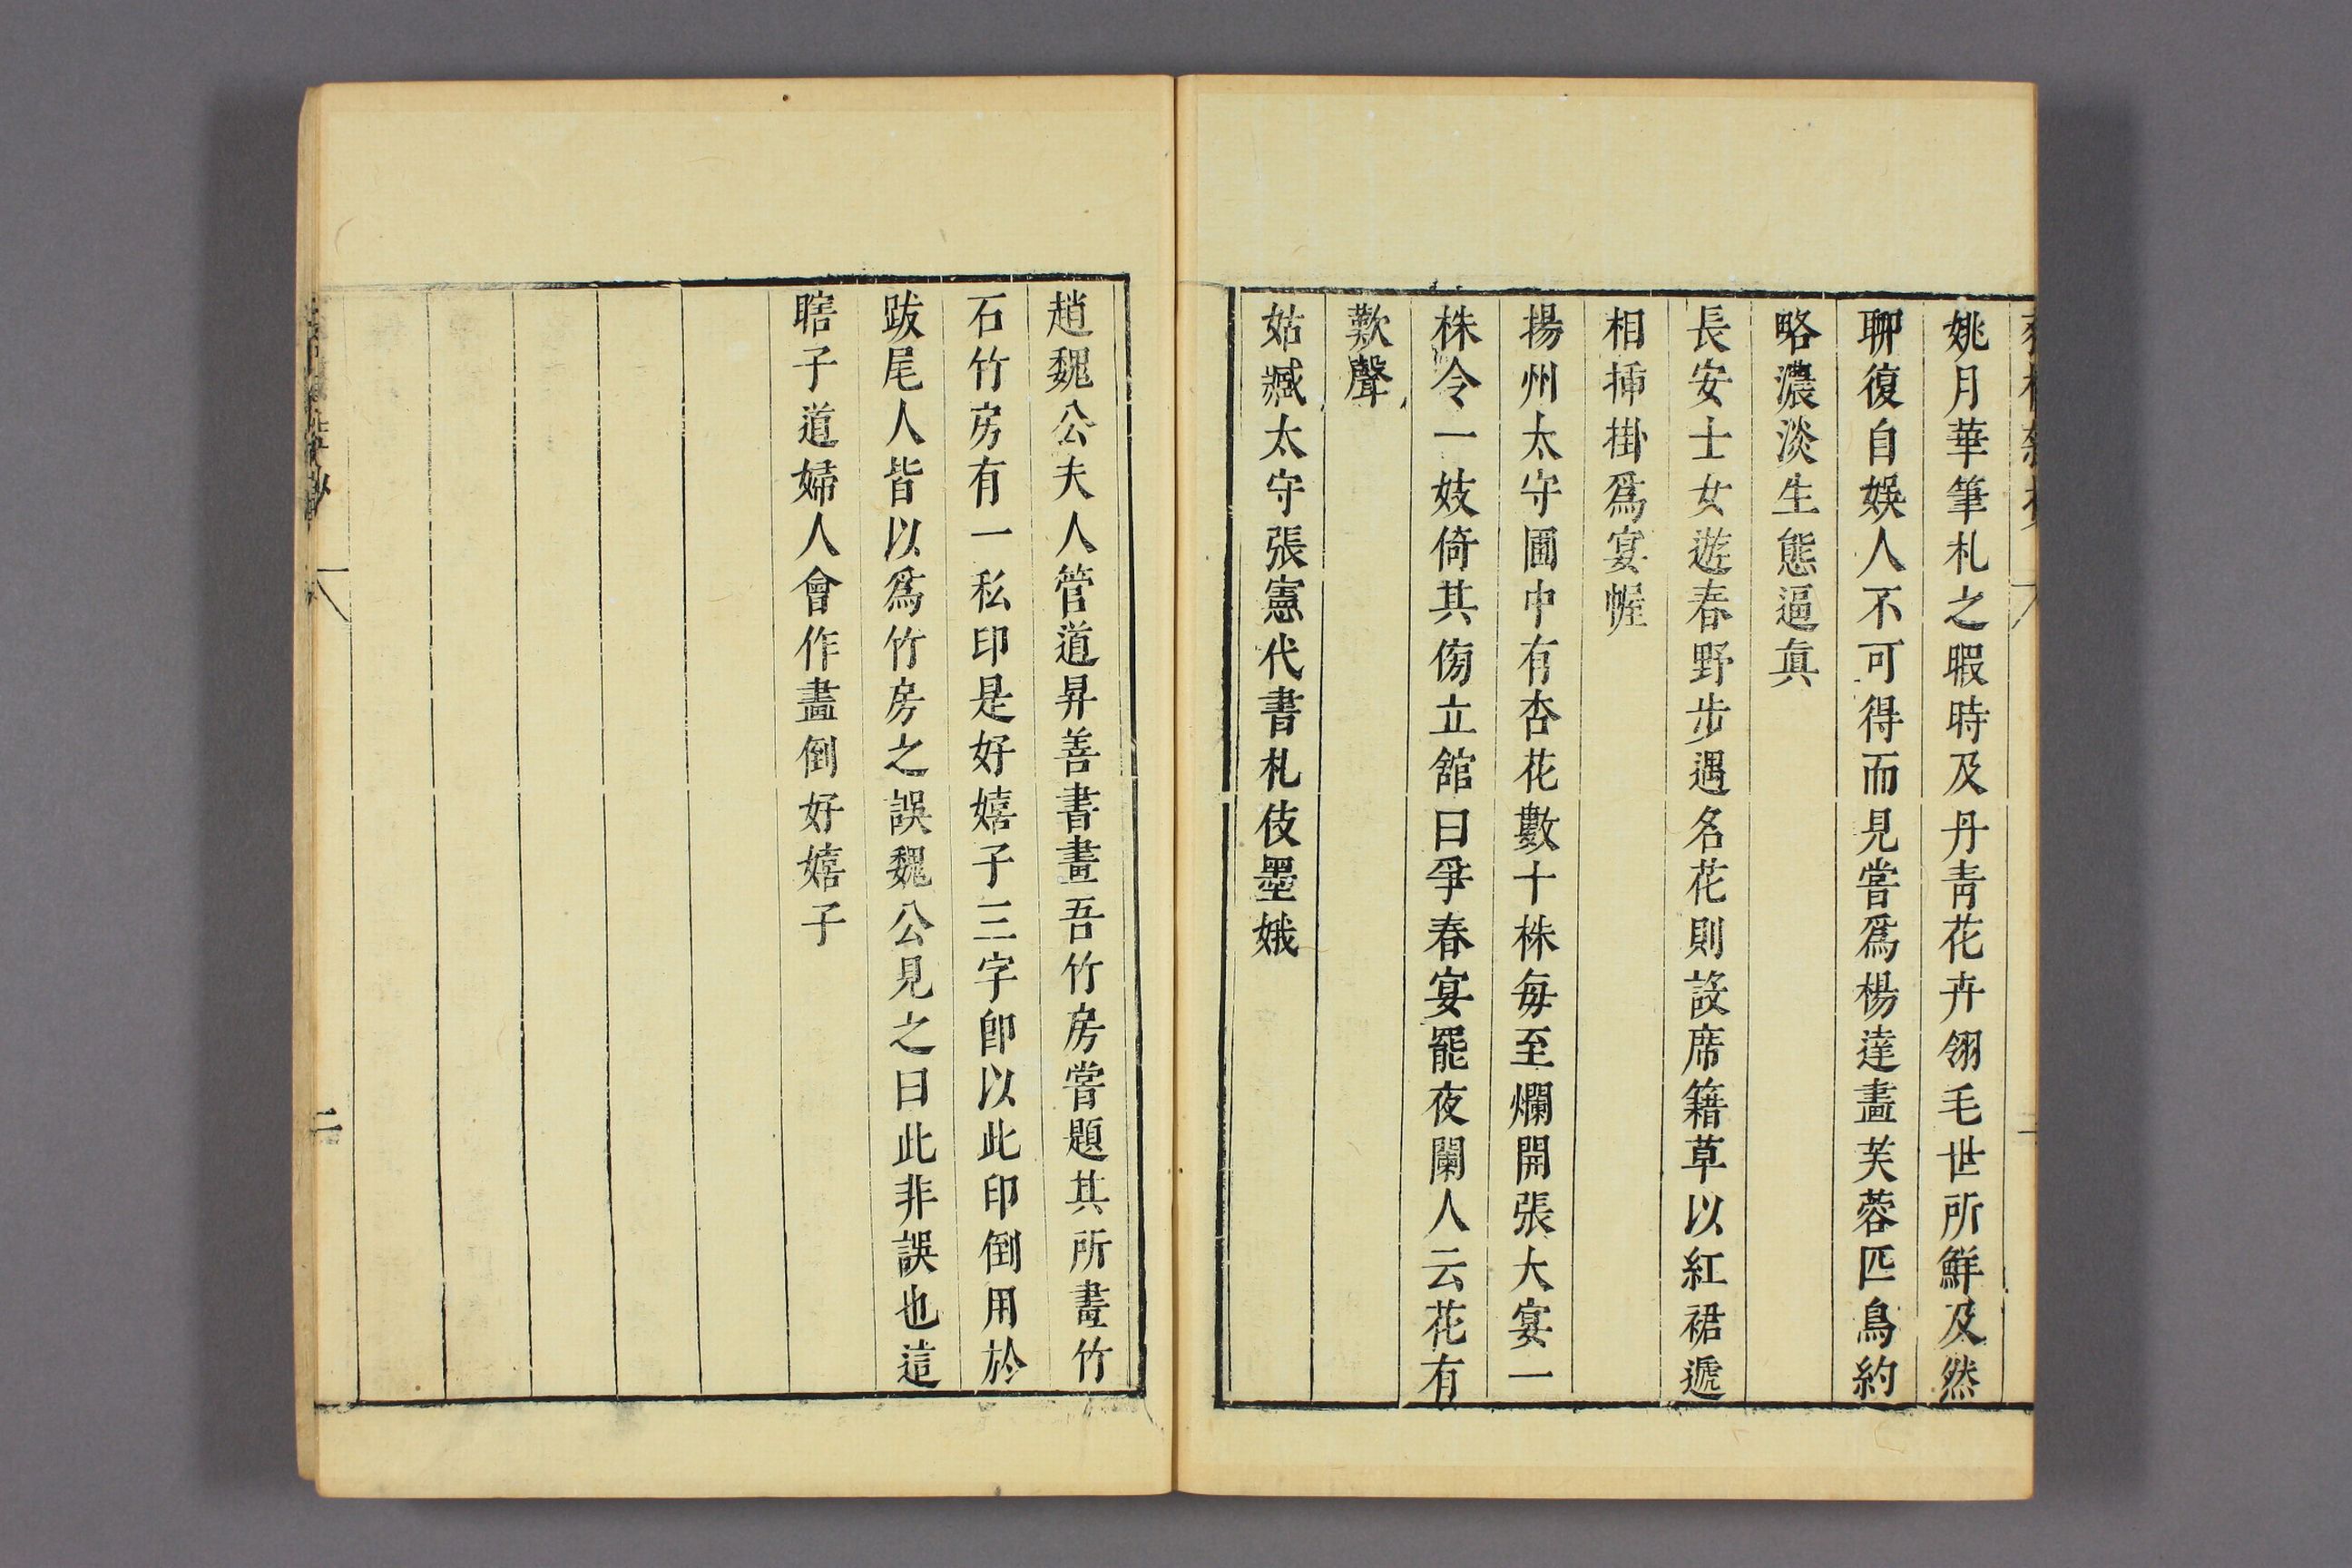 姚月華筆札之暇時及丹靑花卉翎毛世所鮮及然
聊復自娛人不可得而見嘗爲楊達畵芙蓉匹鳥約
略濃淡生態逼眞
長安士女遊春野步遇名花則設席籍草以紅裙遞
相揷掛爲宴幄
揚州太守圃中有杏花數十株每至爛開張大宴一
株令一妓倚其傍立館曰爭春宴罷夜闌人云花有
歎聲
姑臧太守張憲代書札伎墨娥
趙魏公夫人管道昇善書畫吾竹房嘗題其所畫竹
石竹房有一私印是好嬉子三字卽以此印倒用於
跋尾人皆以爲竹房之誤魏公見之曰此非誤也這
瞎子道婦人會作畵倒好嬉子
二